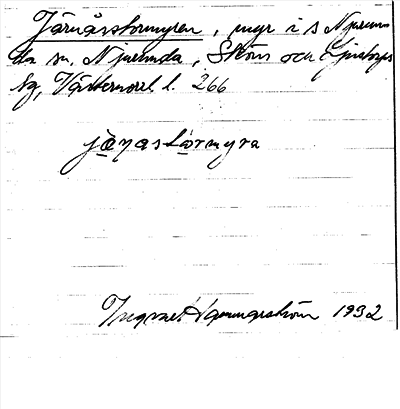 Järnåsstormyren, myr i s Njurun-
da sn. Njurunda, Sköns och Ljustorps
tg, Västernorrl l. 266
jä̱ŋastо̱rmyra
Ingvar Hammarström 1932